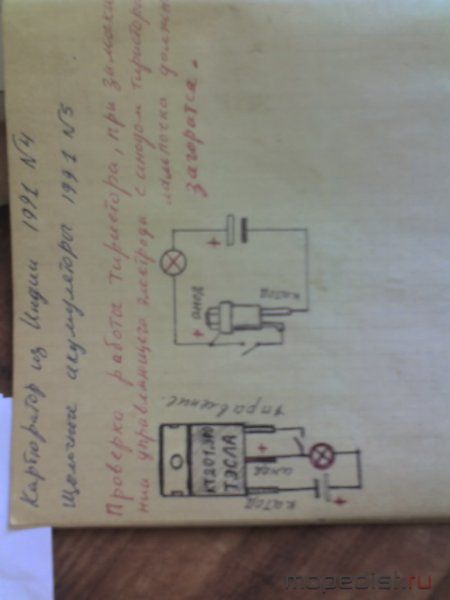 Карбюратор из Индии 1991 N4
Щелочные акумуляторы 1991 N5
Проверка работа тиристора, при замыка
нии управляющего электрода с анодом тиристора
лампочка должна
загоратся.
+
анод
катод
+
управление.
КТ201/300
ТЭСЛА
+
анод
катод
+
mopedist.ru